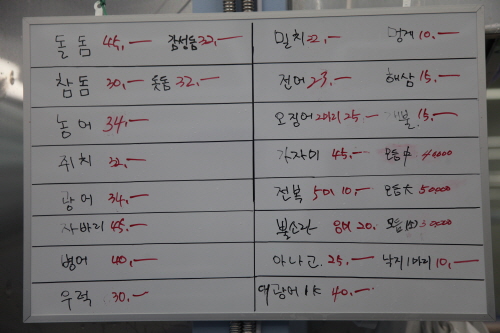 돌돔 45,- 감성돔 32,-
참돔 30,- 돗돔 32,-
농어 34,-
쥐치 32,-
광어 34,-
자바리 45,-
병어 40,-
우럭 30,-
밀치 22,- 멍게 10,-
전어 23,- 해삼 15,-
오징어 2마리 25- 개불 15,-
가자미 45,- 모듬 小 40000
전복 5마 10,- 모듬 大 50000
불소라 20, 모듬 30000
아나고 25,- 낙지 1마리 10,-
광어 40,-